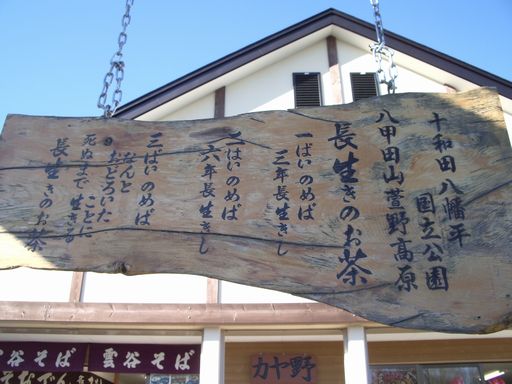 十和田八幡平
国立公園
八甲田山萱野高原
長生きのお茶
一ぱいのめば
三年長生きし
二はいのめば
六年長生きし
三ばいのめば
なんと
おどろいた
ことに
死ぬまで生きる
長生きのお茶
雲谷そば
雲谷そば
野ヤカ